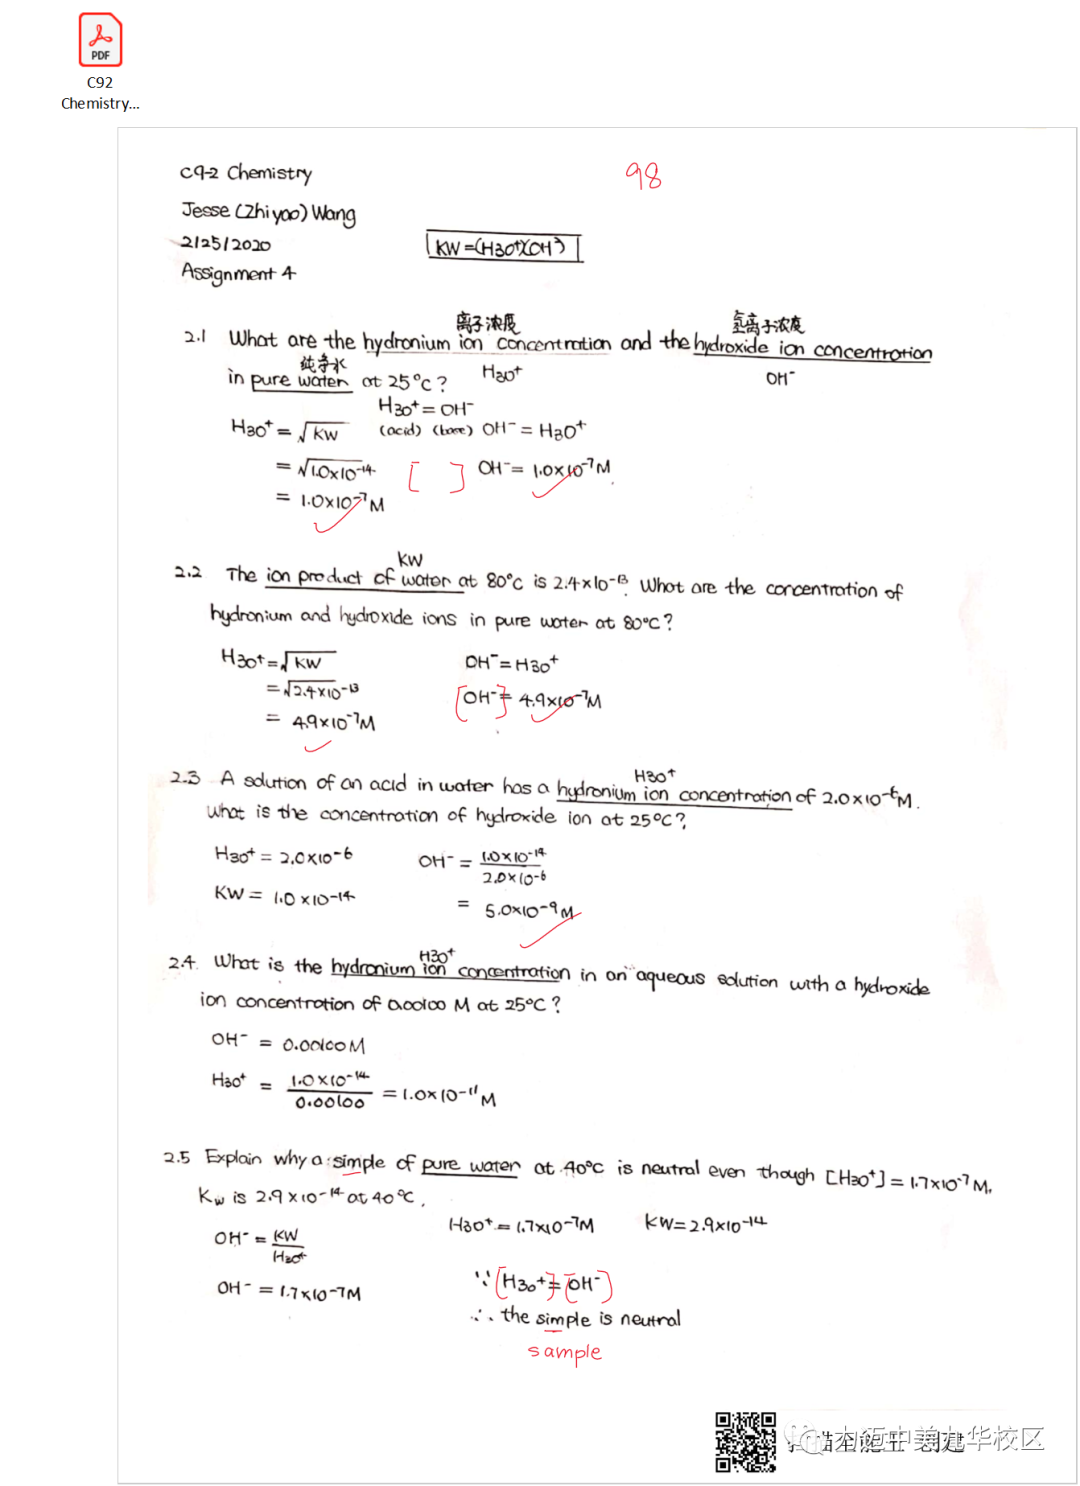 PDF
C92
Chemistry...
C9-2 Chemistry
98
Jesse (Zhiyao) Wang
2/25/2020
KW=(H3O+)(OH-)
Assignment 4
离子浓度
氢离子浓度
2.1 What are the hydronium ion concentration and the hydroxide ion concentration
纯净水
in pure water at 25°C?
H3O+
OH-
H3O+=OH-
H3O+=√KW
(acid) (base)
OH-=H3O+
=√1.0×10-14
[ ]
OH-=1.0×10-7M
= 1.0×10-7M
KW
2.2 The ion product of water at 80°C is 2.4×10-13. What are the concentration of
hydronium and hydroxide ions in pure water at 80°C?
H3O+=√KW
OH-=H3O+
=√2.4×10-13
[OH-]= 4.9×10-7M
= 4.9×10-7M
H3O+
2.3 A solution of an acid in water has a hydronium ion concentration of 2.0×10-6M.
What is the concentration of hydroxide ion at 25°C?
H3O+ = 2.0×10-6
OH- = 1.0×10-14
2.0×10-6
KW = 1.0×10-14
= 5.0×10-9M
H3O+
2.4. What is the hydronium ion concentration in an aqueous solution with a hydroxide
ion concentration of 0.00100 M at 25°C?
OH- = 0.00100M
H3O+ = 1.0×10-14
0.00100
= 1.0×10-11M
2.5 Explain why a simple of pure water at 40°C is neutral even though [H3O+]=1.7×10-7M.
Kw is 2.9×10-14 at 40°C.
OH- = KW
H3O+
H3O+=1.7×10-7M
KW=2.9×10-14
OH- = 1.7×10-7M
∵ [H3O+]=[OH-]
∴ the simple is neutral
sample
力迈中美九华校区